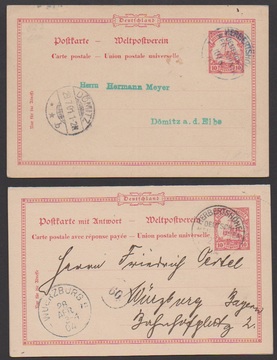 Deutschland
Postkarte — Weltpostverein
Carte postale — Union postale universelle
HERBERTSHÖHE
10
Herrn Hermann Meyer
DÖMITZ
Dömitz a. d. Elbe
Deutschland
Postkarte mit Antwort — Weltpostverein
Carte postale avec réponse payée — Union postale universelle
HERBERTSHÖHE
10
Herrn Friedrich Oertel
Würzburg Bayern
Bahnhofplatz 2.
WUERZBURG